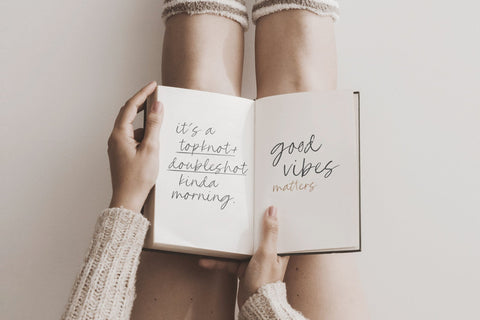 it's a
topknot+
doubleshot
kinda
morning.
good
vibes
matters